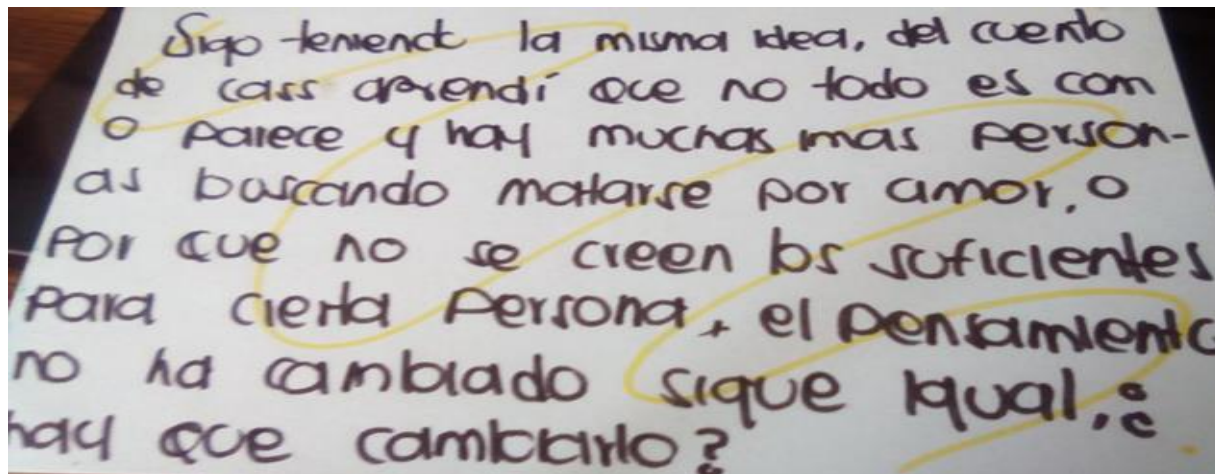 Sigo teniendo la misma idea, del cuento
de cass aprendí que no todo es com
o parece y hay muchas mas person-
as buscando matarse por amor, o
por que no se creen los suficientes
para cierta persona, el pensamiento
no ha cambiado sigue igual, ¿
hay que cambiarlo?